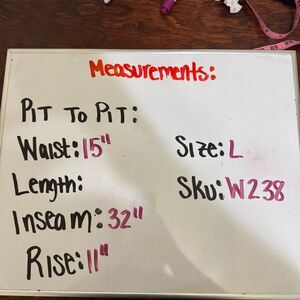 Measurements:
Pit to Pit:
Waist: 15"
Size: L
Length:
Sku: W238
Inseam: 32"
Rise: 11"